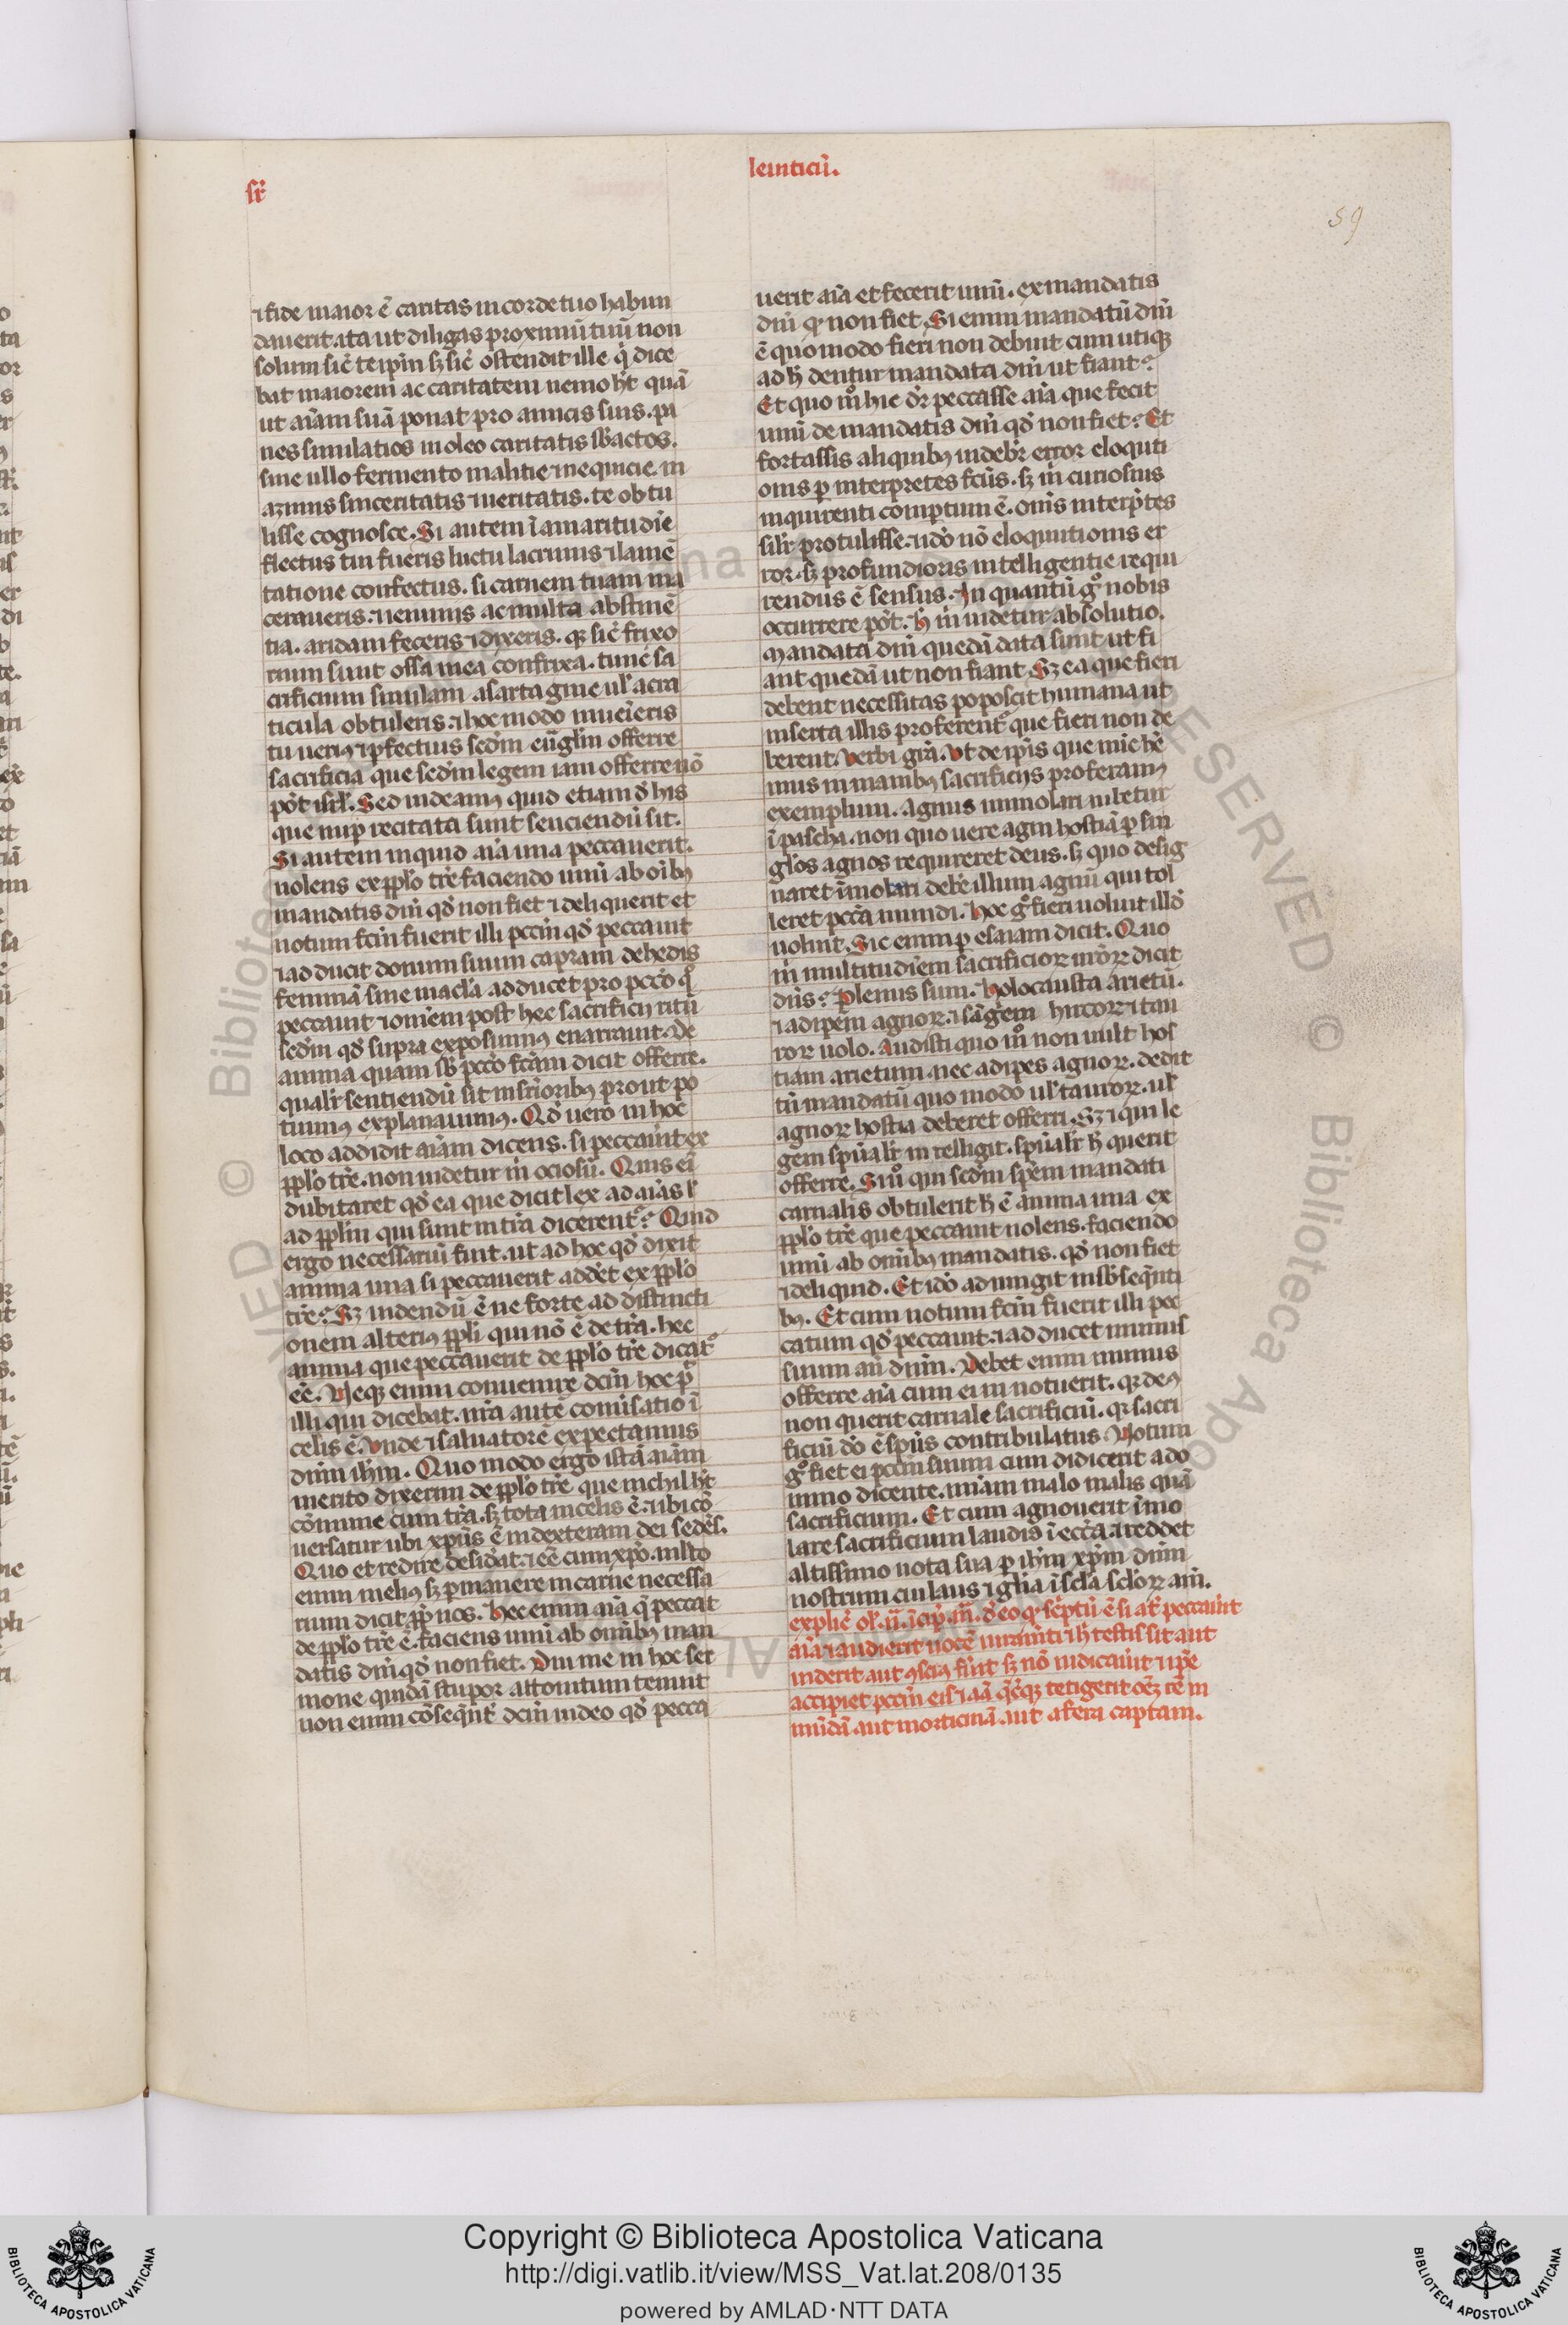 sr̄
leuiticū.
59
⁊ fide maior ē caritas in corde tuo habun
dauerit. ita ut diligas proximū tuū non
solum sic̄ teip̄m sꝫ sic̄ ostendit ille q̇ dice
bat maiorem ac caritatem nemo hт̄ quā
ut aīam suā ponat pro amicis suis. pa
nes similatios in oleo caritatis sb̄actos.
sine ullo fermento malitie ⁊ nequicie. in
azimis sinceritatis ⁊ ueritatis. te obtu
lisse cognosce. Si autem ī amaritudīe
flectus tui fueris luctu lacrimis ⁊ lamē
tatione confectus. si carnem tuam ma
ceraueris. ⁊ ieiuniis ac multa abstinē
tia. aridam feceris ⁊ dixeris. qꝫ sic̄ frixo
rium sunt ossa mea confrixa. tunc sa
crificium similam a sartagine ul̄ a cra
ticula obtuleris. ⁊ hoc modo inueīeris
tu ueriꝰ ⁊ ꝑfectius sed̄m eūglīm offerre
sacrificia que sed̄m legem iam offerre nō
pōt isrl̄. Sed uideamꝰ quid etiam d̄ his
que nuꝑ recitata sunt senciendū sit.
Si autem inquid aīa una peccauerit.
nolens ex ppl̄o tr̄e faciendo unū ab oībꝰ
mandatis dn̄i qd̄ non fiet ⁊ deliquerit et
notum fc̄m fuerit illi pcc̄m qd̄ peccauit
⁊ adducit donum suum capram de hedis
feminā sine macl̄a adducet pro pcc̄o qͦ
peccauit ⁊ omēm post hec sacrificij ritū
sed̄m qd̄ supra exposuimꝰ enarrauit. De
anima quam sb̄ pcc̄o fc̄am dicit offerre.
qualr̄ sentiendū sit in suꝑioribꝰ prout po
tuimꝰ explanauimꝰ. Qd̄ uero in hoc
loco addidit aīam dicens. si peccauīt ex
ppl̄o tr̄e. non uidetur m̄ ociosū. Quis eī
dubitaret qd̄ ea que dicit lex ad aīas l̄
ad ppl̄m qui sunt in tr̄a dicerent᷑? Quid
ergo necessariū fuit. ut ad hoc qd̄ dixit
anima una si peccauerit addēt ex ppl̄o
tr̄e? Sꝫ uidendū ē ne forte ad distincti
onem alteriꝰ ppl̄i qui nō ē de tr̄a. hec
anima que peccauerit de ppl̄o tr̄e dicat᷑
ēe. Neqꝫ enim conuenire dc̄m hoc pt̄
illi qui dicebat. nr̄a autē conūsatio ī
celis ē. Vnde ⁊ saluatorē expectamus
dn̄m ih̄m. Quo modo ergo istā aīam
merito dixerim de ppl̄o tr̄e que nichil hт̄
cōmune cum tr̄a. sꝫ tota in celis ē. ⁊ ibi cō
uersatur ubi xp̄us ē in dexteram dei sedēs.
Quo et redire desid̄at. ⁊ ēe cum xp̄o. mlto
enim meliꝰ sꝫ ꝑmanere in carne necessa
rium dicit ꝓp nos. Hec enim aīa q̄ peccat
de ppl̄o tr̄e ē. faciens unū ab omibꝰ man
datis dn̄i qd̄ non fiet. Diu me in hoc ser
mone quidā stupor attonitum tenuit
non enim cōseq̄nt᷑ dc̄m uideo qd̄ pecca
uerit aīa et fecerit unū. ex mandatis
dn̄i qꝫ non fiet. Si enim mandatū dn̄i
ē quomodo fieri non debuit cum utiqꝫ
ad h̄ dentur mandata dn̄i ut fiant?
Et quo mͦ hic dr̄ peccasse aīa que fecit
unū de mandatis dn̄i qd̄ non fiet? Et
fortassis aliquibꝰ uidebr̄ error eloquti
onis ꝑ interpretes fc̄us. sꝫ m̄ curiosius
inquirenti comꝑtum ē. om̄s interp̄tes
silr̄ protulisse. ⁊ ido nō eloqutionis er
ror. sꝫ profundioris intelligentie requi
rendus ē sensus. In quantū gͦ nobis
occurrere pōt. h̄ m̄ uidetur absolutio.
Mandata dn̄i quedā data sunt ut fi
ant quedā ut non fiant. Sꝫ ea que fieri
debent necessitas poposcit humana ut
inserta illis proferent᷑ que fieri non de
berent. Verbi grā. Vt de ip̄is que nūc hē
mus in manibꝰ sacrificijs proferamꝰ
exemplum. Agnus immolari iubetur
ī pascha. non quo uere agni hostiā ꝑ sin
gl̄os agnos requireret deus. sꝫ quo desig
naret īmolari debē illum agnū qui tol
leret pcc̄a mundi. Hoc gͦ fieri uoluit illd̄
nolnit. Sic enim ꝑ esaiam dicit. Quo
m̄ multitudīem sacrificioꝝ ur̄oꝝ dicit
dn̄s? Plenus sum. Holocausta arietū.
⁊ adipem agnoꝝ. ⁊ sāgem hircoꝝ ⁊ tau
roꝝ nolo. Audisti quo mͦ non uult hos
tiam arietum. nec adipes agnoꝝ. dedit
tn̄ mandatū quo modo ul̄ tauroꝝ. ul̄
agnoꝝ hostia deberet offerri. Sꝫ ⁊ qui le
gem spūalr̄ intelligit. spūalr̄ h̄ querit
offerre. Si uͦ qui sed̄m spēm mandati
carnalis obtulerit h̄ ē anima una ex
ppl̄o tr̄e que peccauit nolens. faciendo
unū ab omibꝰ mandatis. qd̄ non fiet
⁊ deliquid. Et ido adiungit in sb̄seq̄nti
bꝰ. Et cum notum fc̄m fuerit illi pec
catum qd̄ peccauit. ⁊ adducet munus
suum an̄ dn̄m. Debet enim munus
offerre aīa cum ei innotuerit. qꝫ deꝰ
non querit carnale sacrificiū. qꝫ sacri
ficiū do ē sp̄us contribulatus. Notum
gͦ fiet ei pcc̄m suum cum didicerit a do
mino dicente. miām malo malis quā
sacrificium. Et cum agnouerit īmo
lare sacrificium laudis ī ecc̄a. ⁊ reddet
altissimo uota sua ꝑ ih̄m xp̄m dn̄m
nostrum cui laus ⁊ gl̄ia ī scl̄a scl̄oꝝ am̄.
explic̄ ol̄. ij. īcip̄. iij. d̄ eo qꝫ sc̄ptū ē si at̄ peccauīt
aīa ⁊ audierit uocē iuramti ⁊ h̄ testis sit aut
uiderit aut ꝯsciꝰ fuīt sꝫ nō iudicauit ⁊ ip̄e
accipiet pcc̄m ei. ⁊ aīa q̄cūqꝫ tetigerit oēꝫ rē in
mūdā aut morticinā aut a fera captam.
Copyright © Biblioteca Apostolica Vaticana
http://digi.vatlib.it/view/MSS_Vat.lat.208/0135
powered by AMLAD·NTT DATA